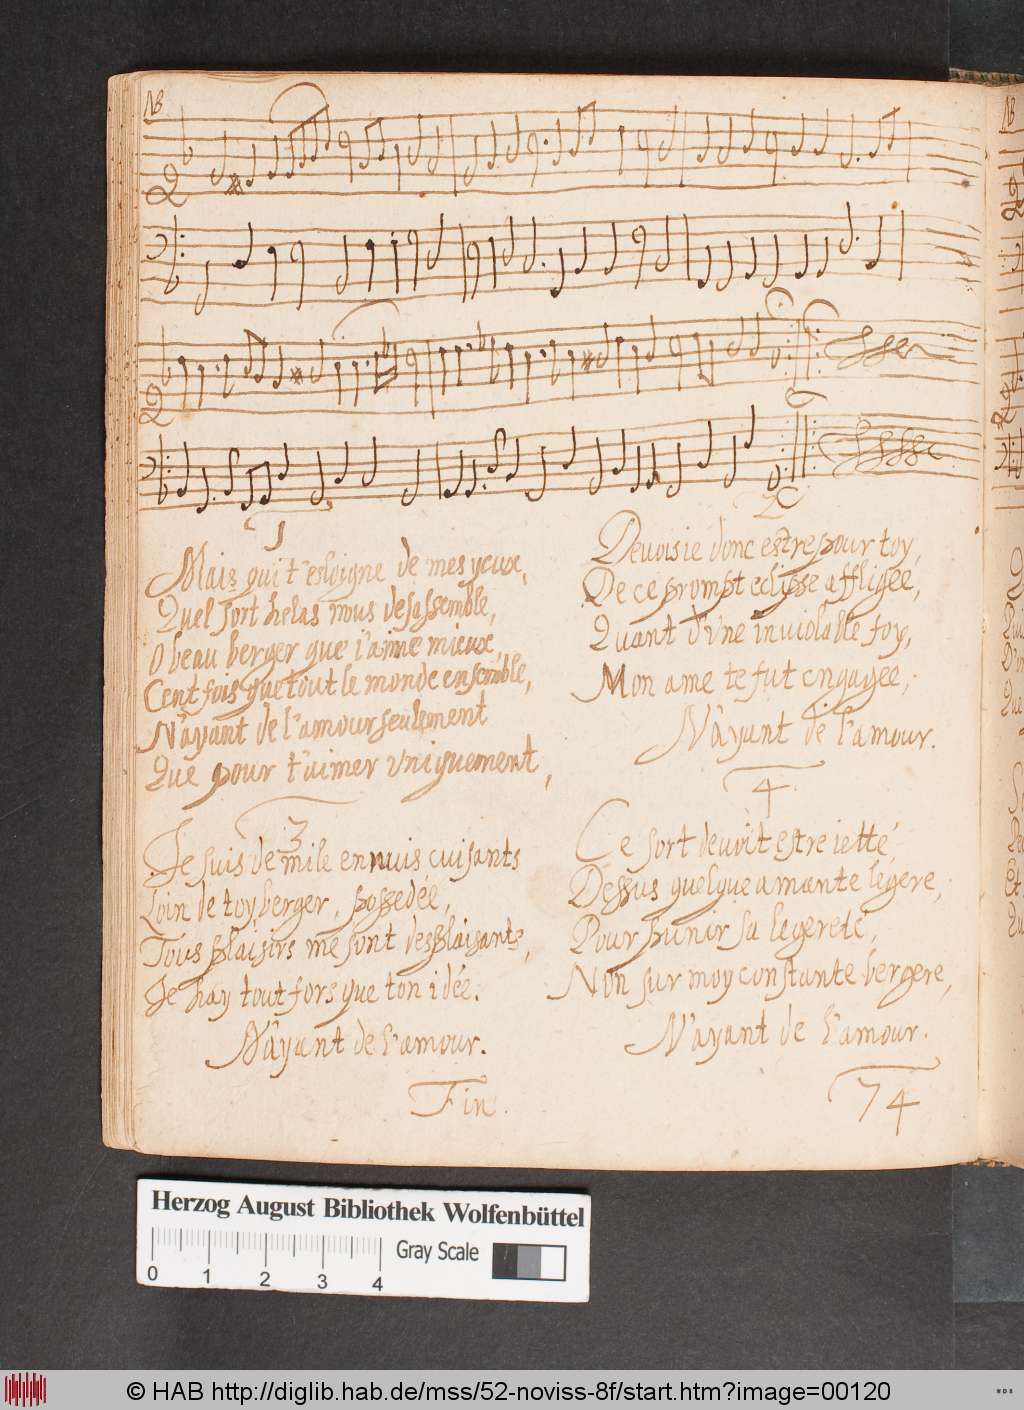 NB
1
Mais qui t'esloigne de mes yeux,
Quel sort helas nous desassemble,
O beau berger que i'aime mieux,
Cent fois que tout le monde ensemble,
N'ayant de l'amour seulement
Que pour t'aimer vniquement,
2
Deuoisie donc estre pour toy,
De ce prompt eclipse affligée,
Quant d'vne inuiolable foy,
Mon ame te fut engagée,
N'ayant de l'amour.
3
Je suis de mile ennuis cuisants
Loin de toy, berger, possedée,
Tous plaisirs me sont desplaisants,
Je hay tout fors que ton idée.
N'ayant de l'amour.
4
Ce sort deuoit estre ietté,
Dessus quelque amante legere,
Pour punir sa legereté,
Non sur moy constante bergere,
N'ayant de l'amour.
Fin.
74
NB
Herzog August Bibliothek Wolfenbüttel
Gray Scale
0 1 2 3 4
© HAB http://diglib.hab.de/mss/52-noviss-8f/start.htm?image=00120